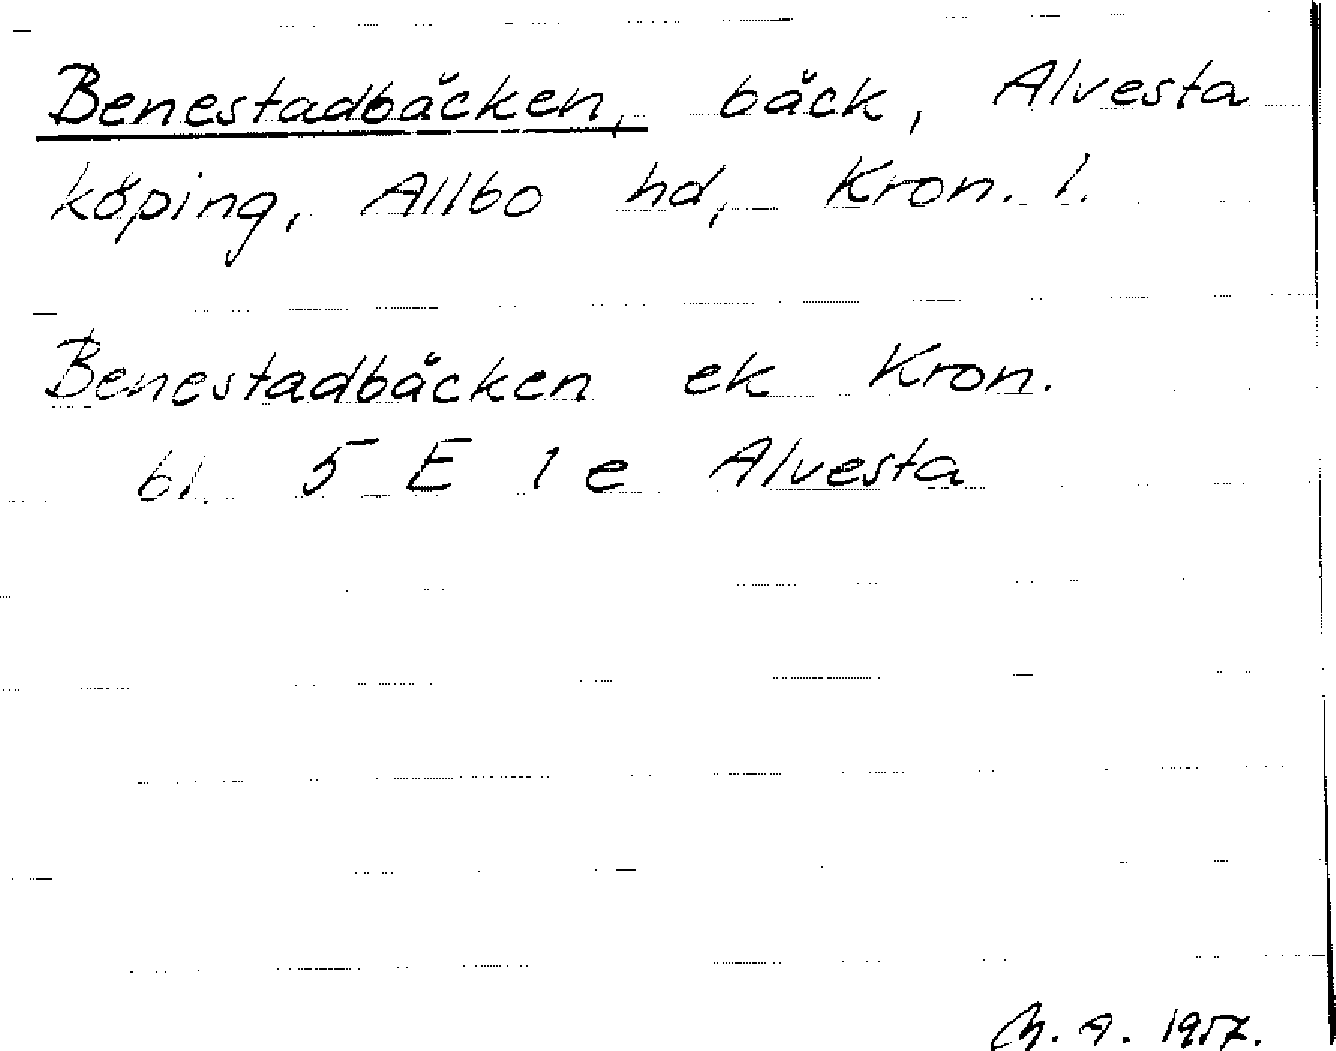 Benestadbäcken, bäck, Alvesta
köping, Allbo hd, Kron. l.
Benestadbäcken ek Kron.
bl. 5 E 1 e Alvesta
M. A. 1957.